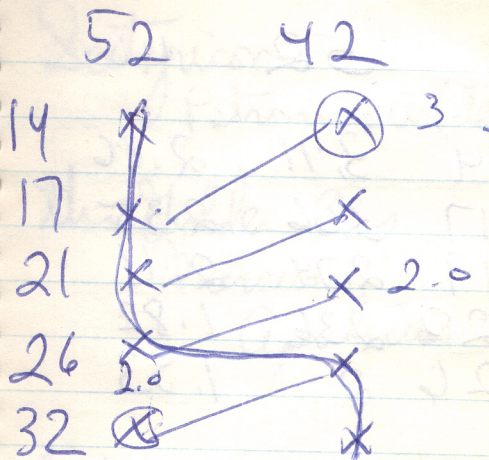 52 42
14 X X 3.
17 X X
21 X X 2.0
26 X X
2.0
32 X X